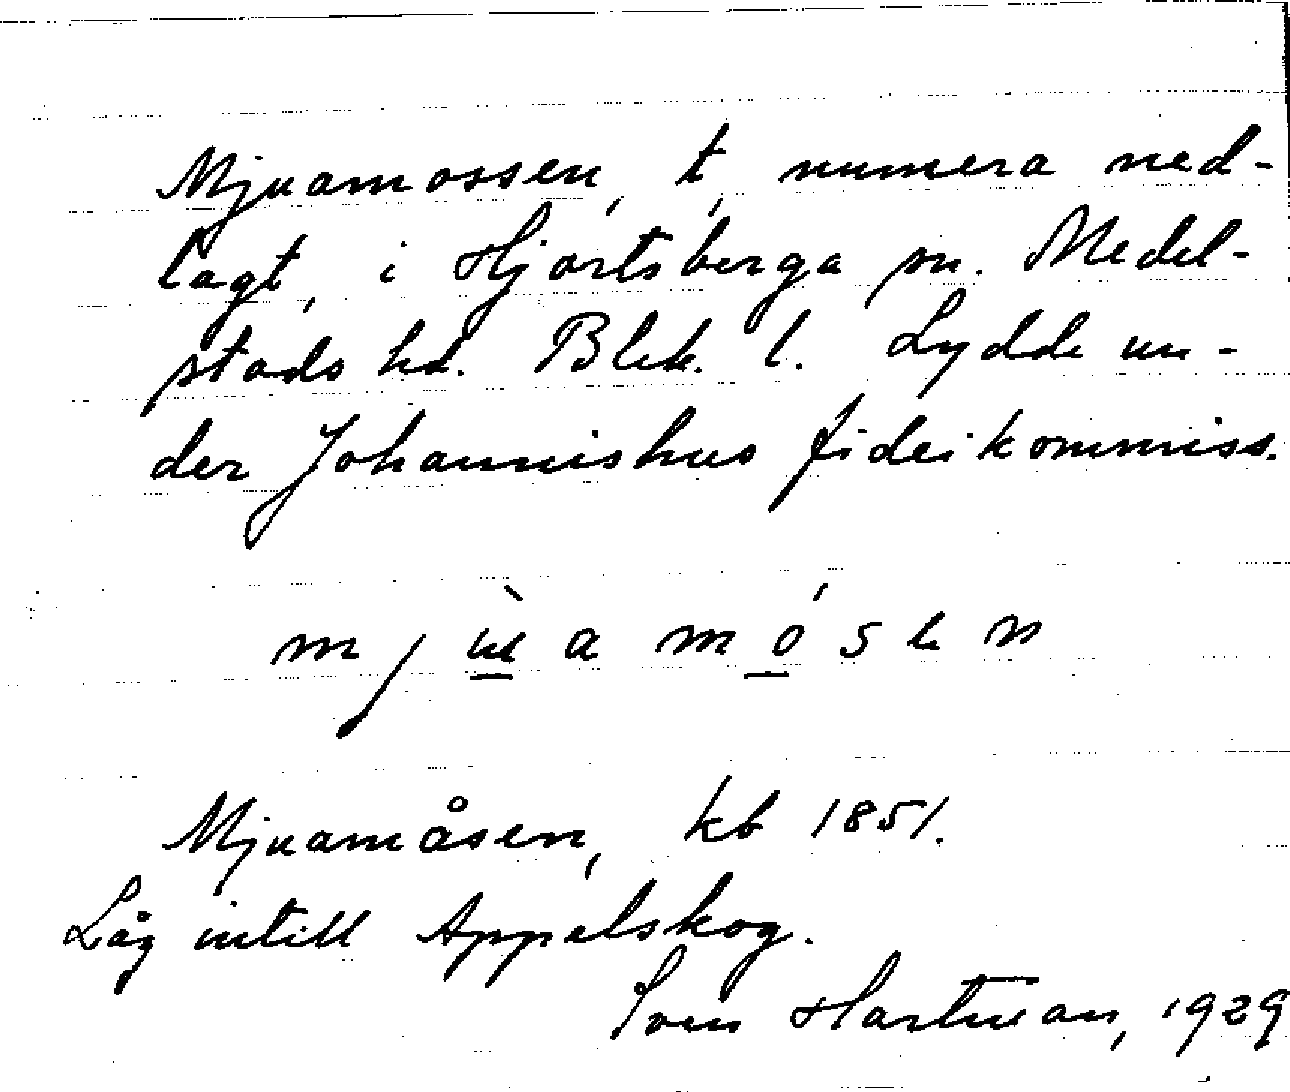 Mjuamossen, t, numera ned-
lagt, i Hjortsberga sn. Medel-
stads hd. Blek. l. Lydde un-
der Johannishus fideikommiss.
mjù̲amó̲sen
Mjuamåsen, kb 1851.
Låg intill Appelskog.
Sven Hartman, 1929